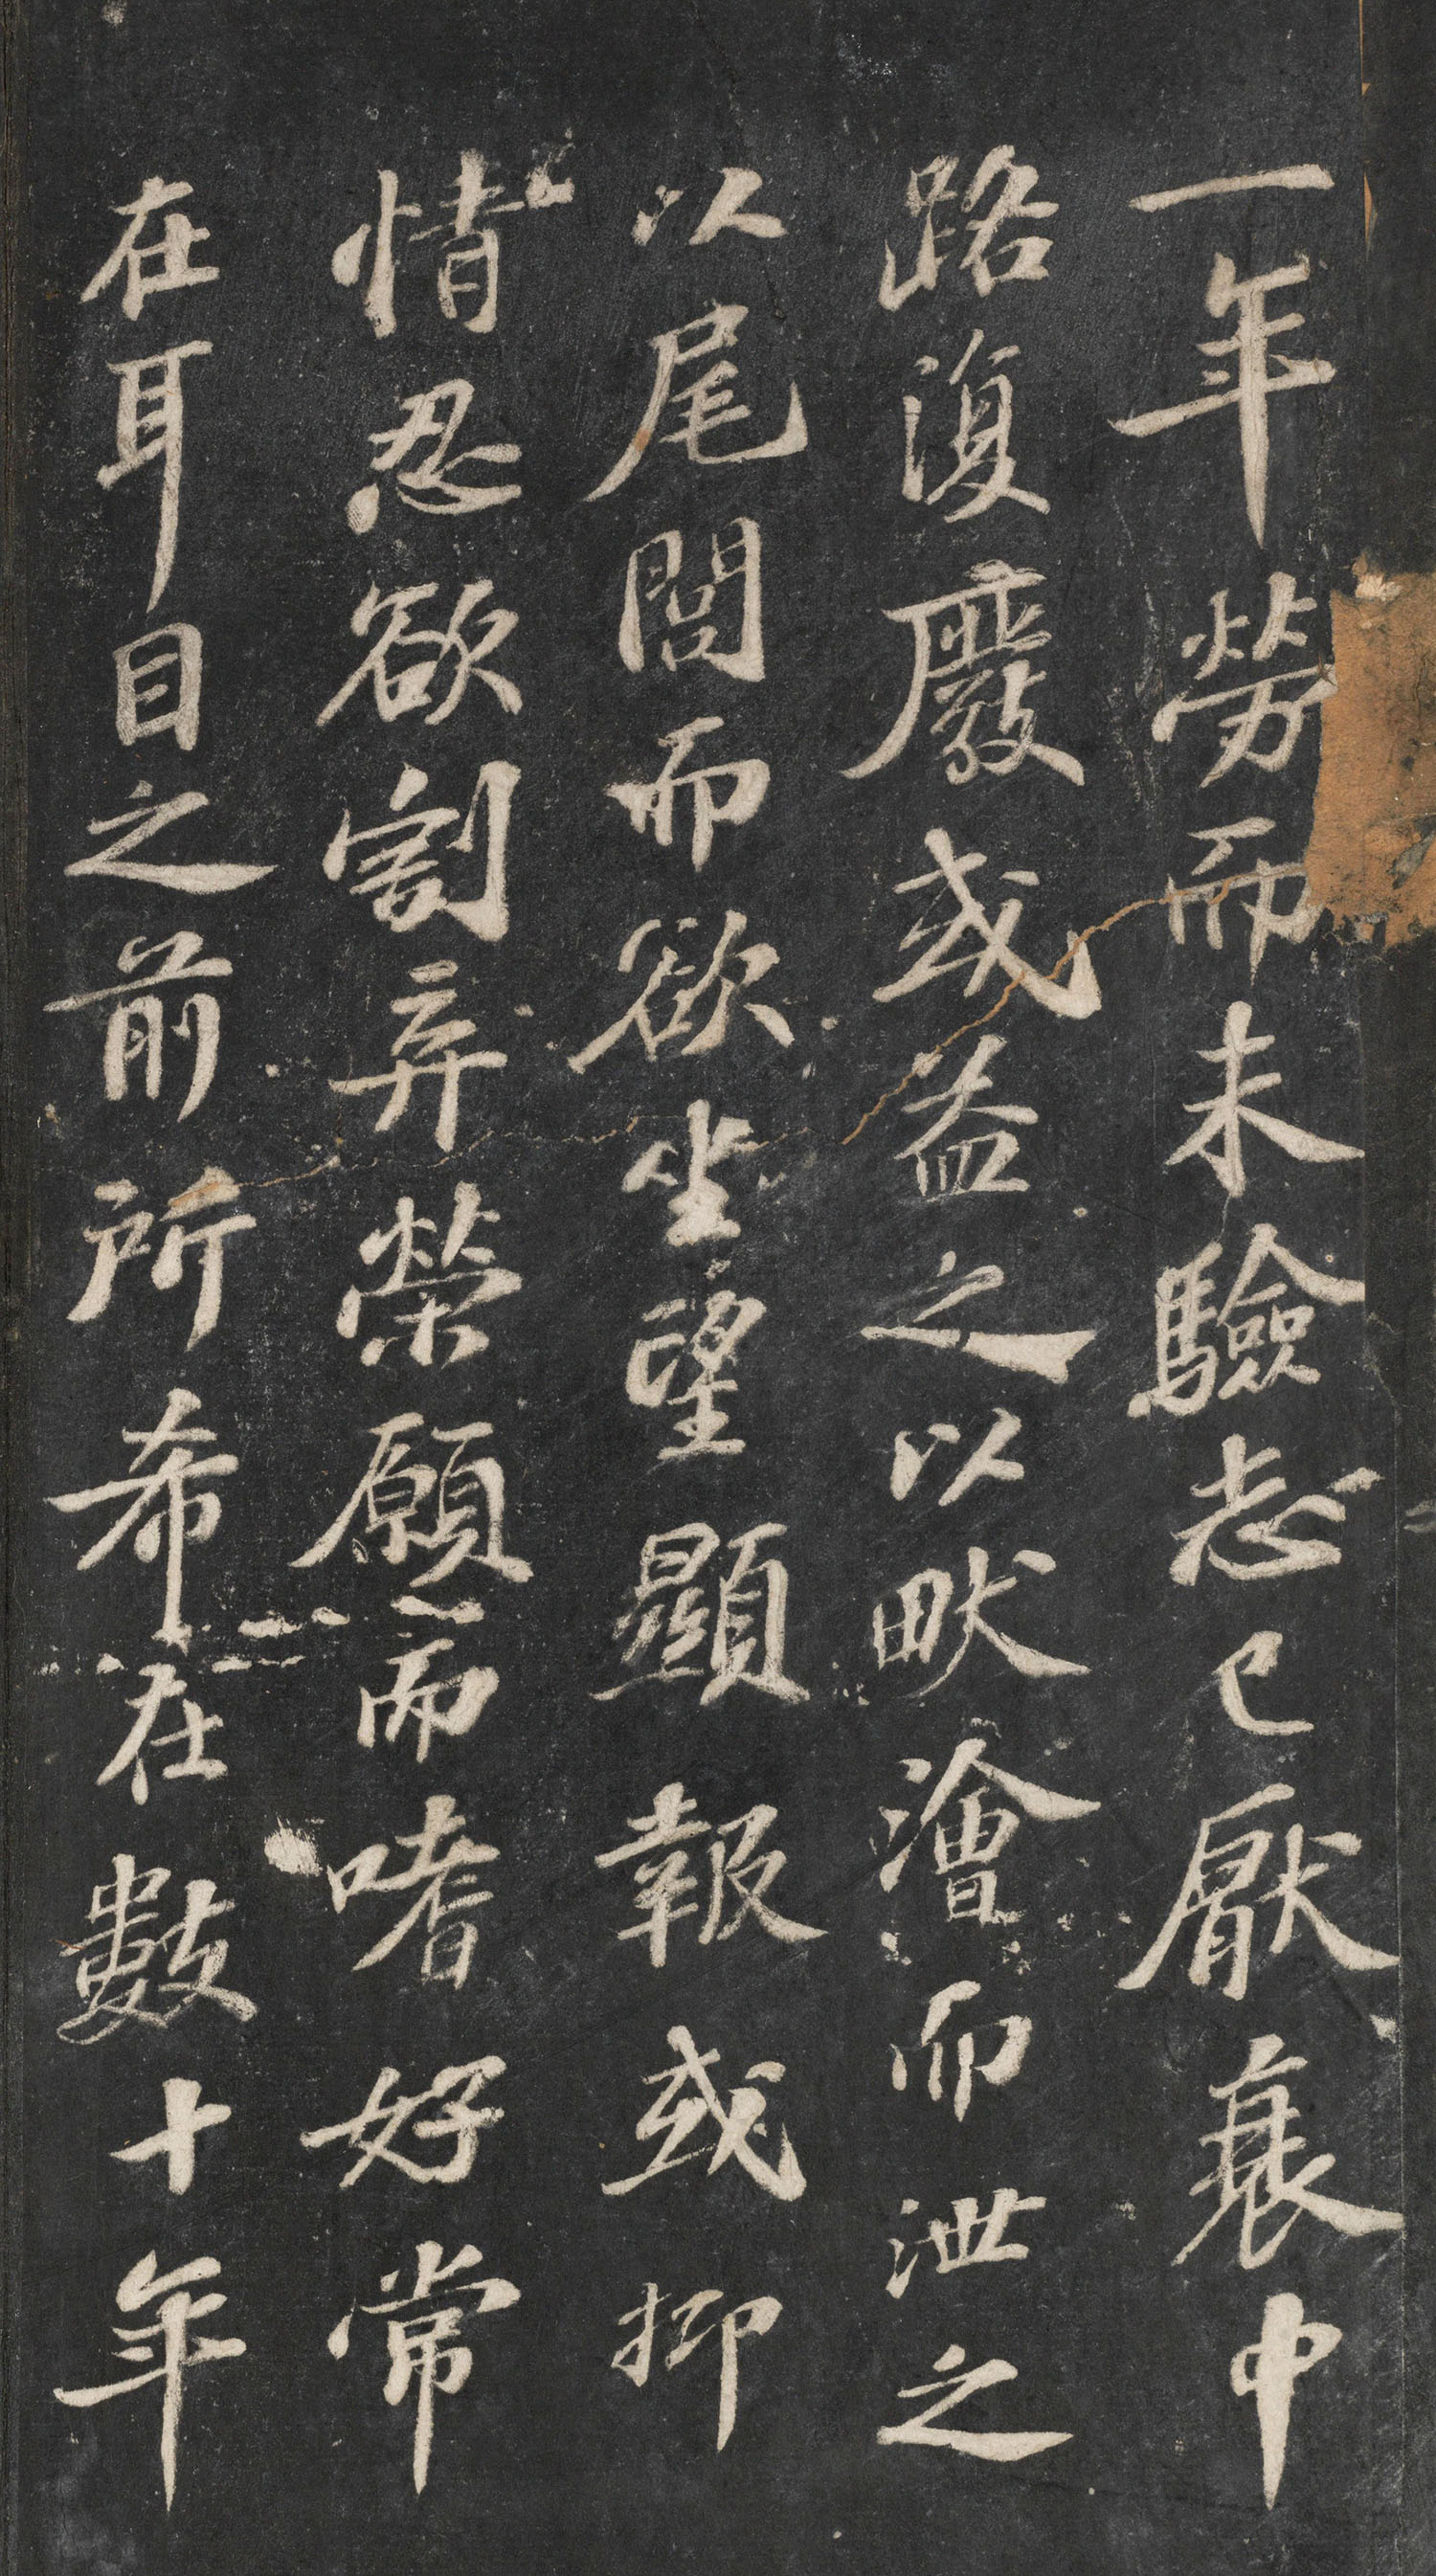 一年勞而未驗志已厭衰中
路復廢或益之以畎澮而泄之
以尾閭而欲坐望顯報或抑
情忍欲割弃榮願而嗜好常
在耳目之前所希在數十年